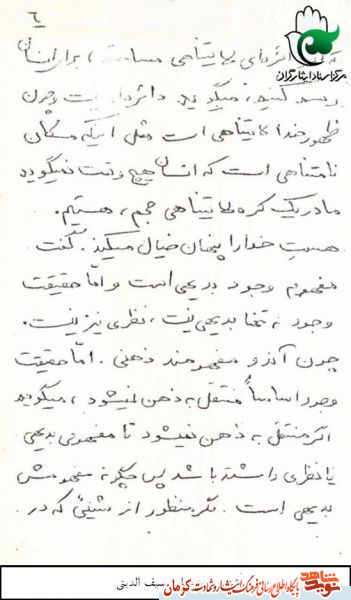 ٦
دائره‌ای لایتناهی مساحته، برای انسان
رسم کنند، میگوید دائره نیست و چون
ظهور خدا لایتناهی است مثل اینکه مکان
نامتناهی است که انسان هیچ وقت نمیگوید
ما در یک کره لایتناهی حجم، هستیم.
هستِ خدا را پنهان خیال میکند. گفت
مفهوم وجود بدیهی است و امّا حقیقت
وجود نه تنها بدیهی نیست، نظری نیز نیست.
چون آندو مفهومند ذهنی. امّا حقیقت
وجود اساساً منتقل به ذهن نمیشود، میگوید
اگر منتقل به ذهن نمیشود تا مفهومی بدیهی
یا نظری داشته باشد پس چگونه مفهومش
بدیهی است. مگر منظور از شیئی که در.
مرکز اسناد ایثارگران
سیف الدینی
نوید شاهد
پایگاه اطلاع رسانی فرهنگ ایثار و شهادت کرمان